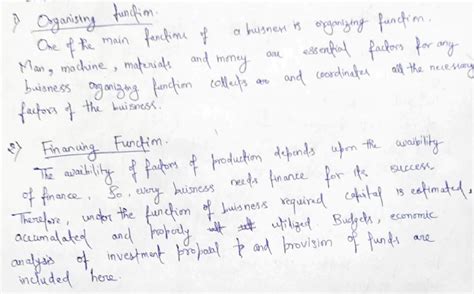 1) Organising function.
One of the main functions of a buisness is organizing function.
Man, machine, materials and money are essential factors for any
buisness organizing function collects are and coordinates all the necessary
factors of the buisness.
2) Financing Function.
The avaibility of factors of production depends upon the avaibility
of finance. So, every buisness needs finance for its success.
Therefore, under the function of buisness required capital is estimated,
accumalated and properly utilized. Budgets, economic
analysis of investment proposal and provision of funds are
included here.